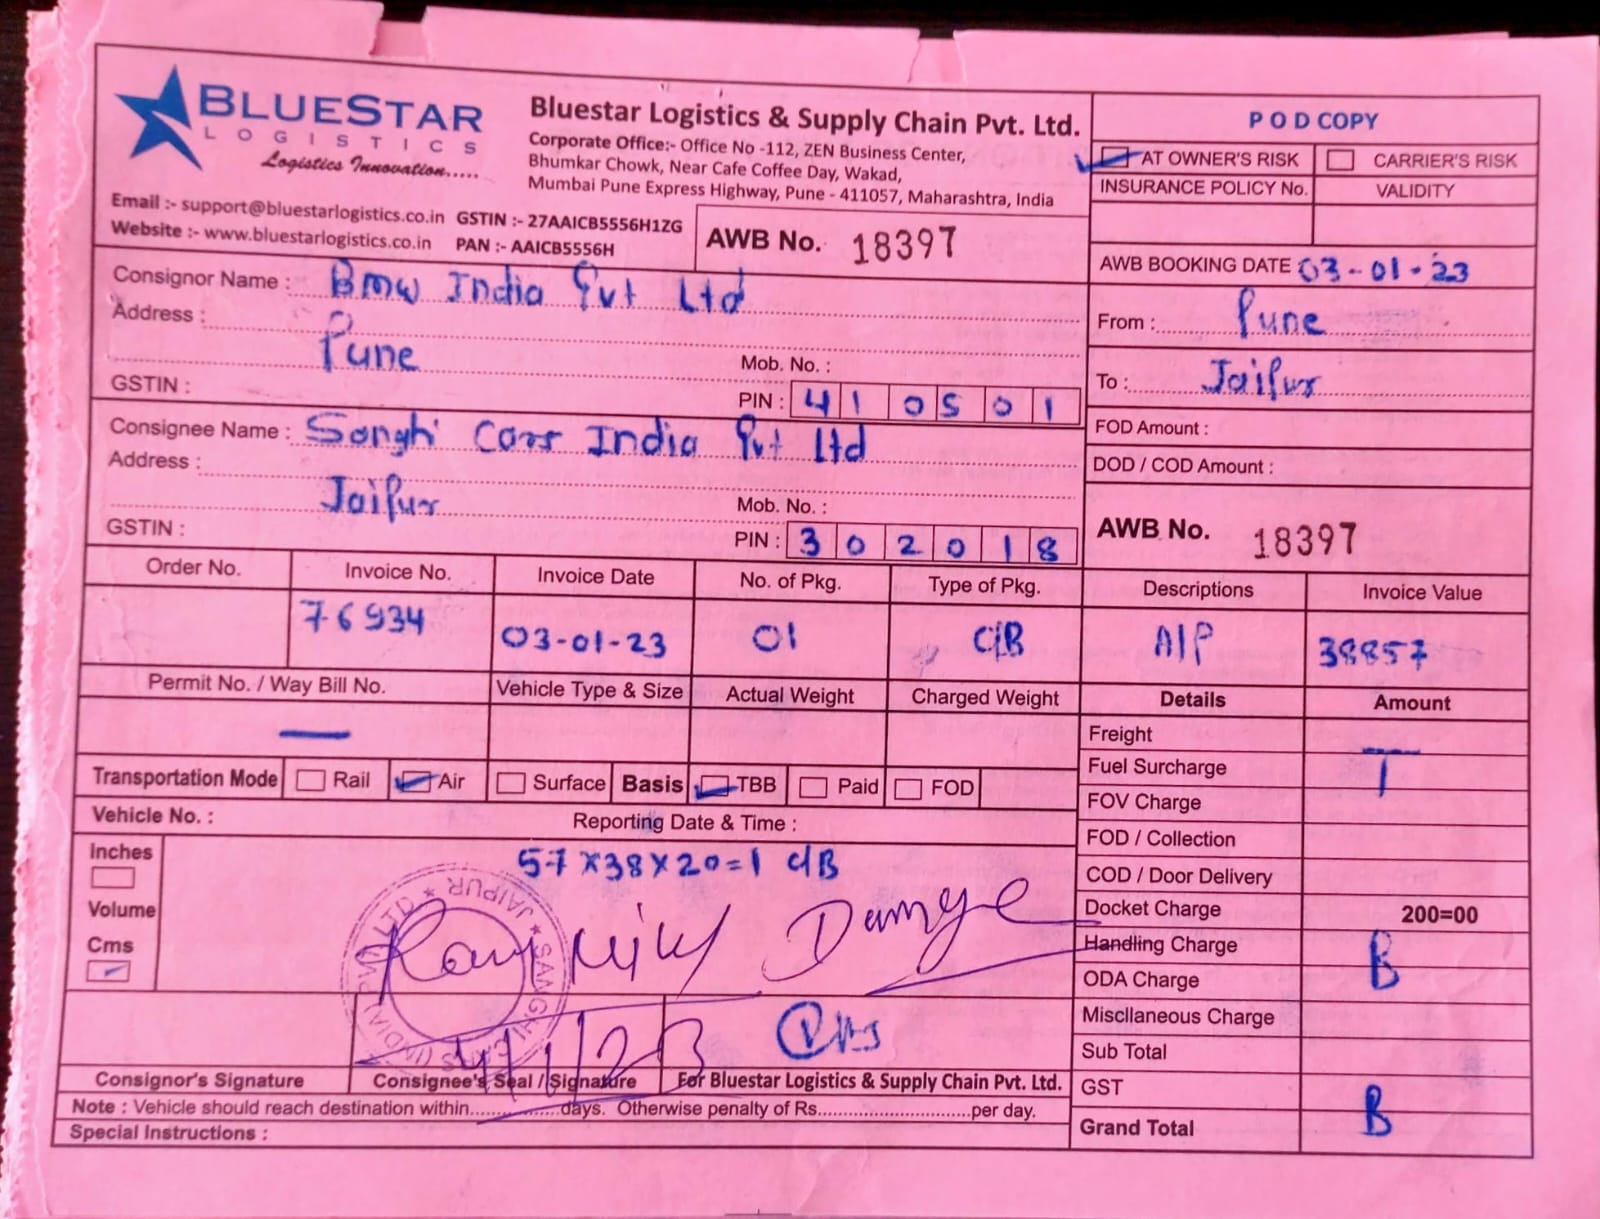 BLUESTAR
LOGISTICS
Logistics Innovation.....
Bluestar Logistics & Supply Chain Pvt. Ltd.
Corporate Office:- Office No -112, ZEN Business Center,
Bhumkar Chowk, Near Cafe Coffee Day, Wakad,
Mumbai Pune Express Highway, Pune - 411057, Maharashtra, India
Email :- support@bluestarlogistics.co.in GSTIN :- 27AAICB5556H1ZG
Website :- www.bluestarlogistics.co.in PAN :- AAICB5556H
AWB No. 18397
POD COPY
AT OWNER'S RISK CARRIER'S RISK
INSURANCE POLICY No. VALIDITY
AWB BOOKING DATE 03-01-23
Consignor Name : Bmw India Pvt Ltd
Address :
Pune
Mob. No. :
GSTIN :
PIN : 410501
From : Pune
To : Jaipur
FOD Amount :
DOD / COD Amount :
Consignee Name : Sanghi Cars India Pvt Ltd
Address :
Jaipur
Mob. No. :
GSTIN :
PIN : 302018
AWB No. 18397
Order No. Invoice No. Invoice Date No. of Pkg. Type of Pkg. Descriptions Invoice Value
76934 03-01-23 01 C/B A/P 38857
Permit No. / Way Bill No. Vehicle Type & Size Actual Weight Charged Weight Details Amount
—
Transportation Mode Rail Air Surface Basis TBB Paid FOD
Vehicle No. : Reporting Date & Time :
Inches
Volume
Cms
57x38x20=1 c/B
Damage
4/1/23
SANGHI CARS (INDIA) PVT. LTD. ★ JAIPUR ★
Freight
Fuel Surcharge T
FOV Charge
FOD / Collection
COD / Door Delivery
Docket Charge 200=00
Handling Charge B
ODA Charge
Miscllaneous Charge
Sub Total
GST
Grand Total B
Consignor's Signature Consignee's Seal / Signature For Bluestar Logistics & Supply Chain Pvt. Ltd.
Note : Vehicle should reach destination within..................days. Otherwise penalty of Rs..............................per day.
Special Instructions :